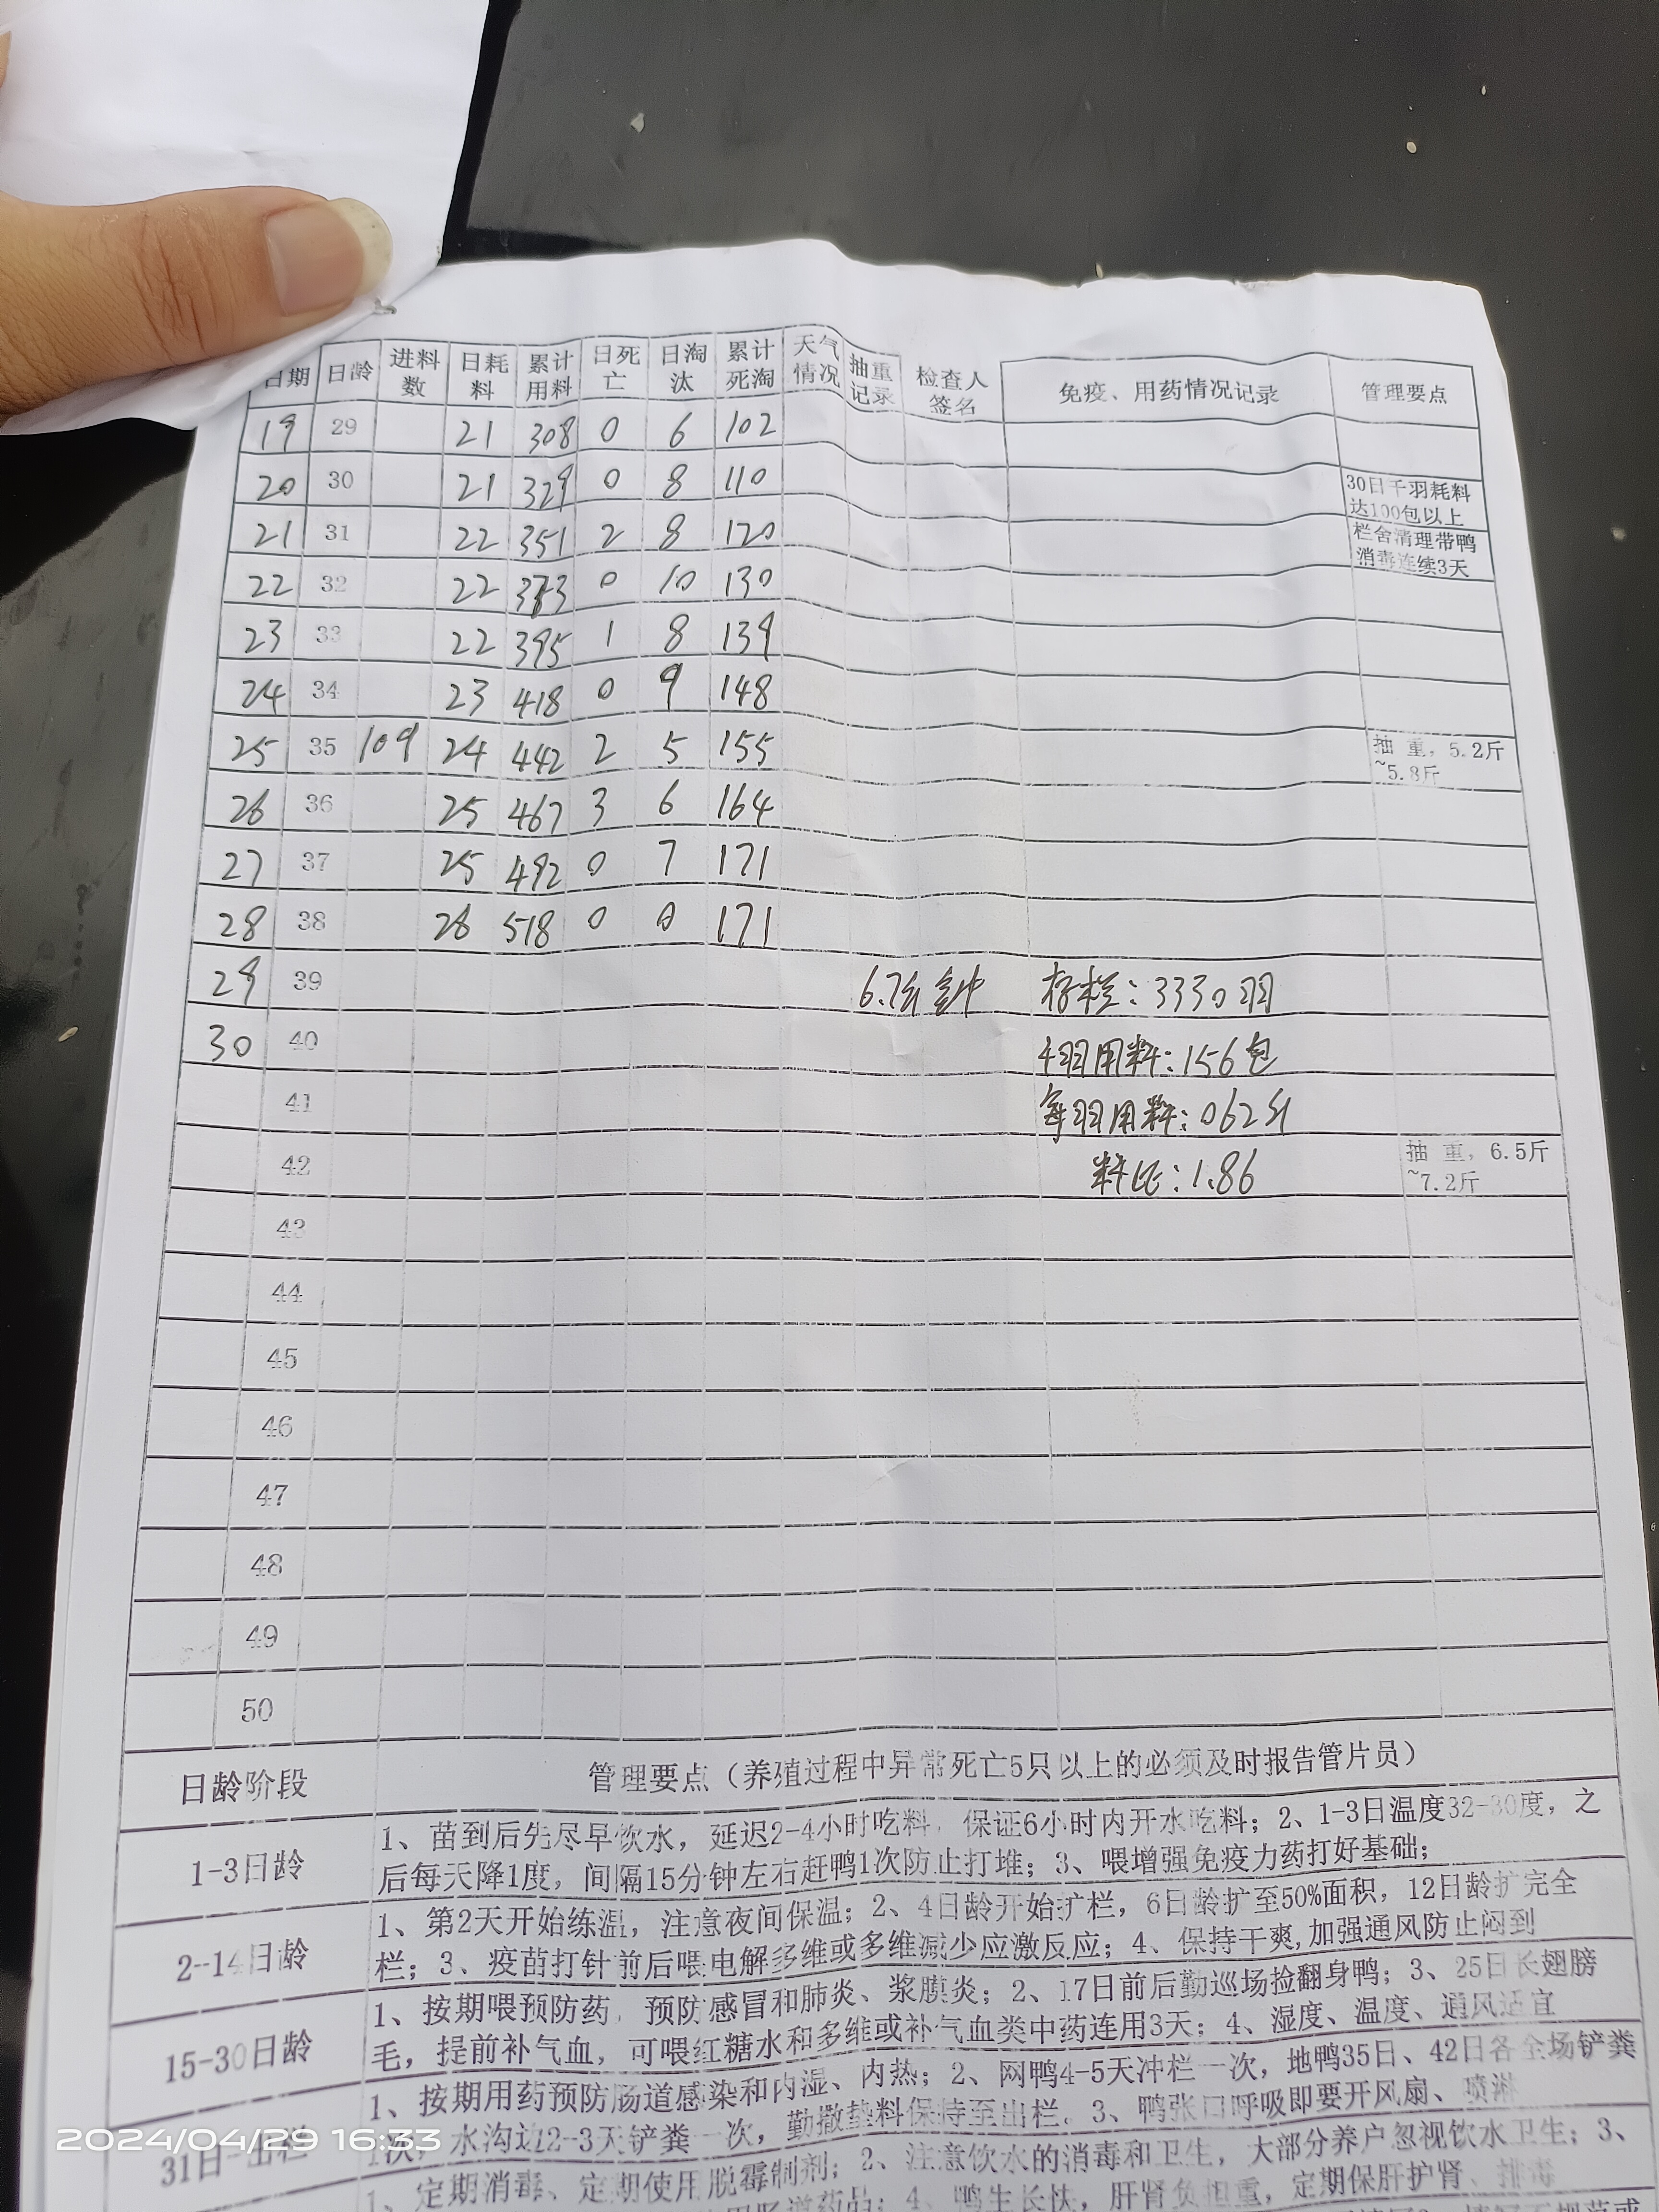 日期 日龄 进料数 日耗料 累计用料 日死亡 日淘汰 累计死淘 天气情况 抽重记录 检查人签名 免疫、用药情况记录 管理要点
19 29 21 308 0 6 102
20 30 21 329 0 8 110 30日千羽耗料达100包以上
21 31 22 351 2 8 120 栏舍清理带鸭消毒连续3天
22 32 22 373 0 10 130
23 33 22 395 1 8 139
24 34 23 418 0 9 148
25 35 109 24 442 2 5 155 抽 重，5.2斤~5.8斤
26 36 25 467 3 6 164
27 37 25 492 0 7 171
28 38 26 518 0 0 171
29 39 6.7斤 存栏：3330羽
30 40 千羽用料：156包
41 每羽用料：062斤
42 料比：1.86 抽 重，6.5斤~7.2斤
43
44
45
46
47
48
49
50
日龄阶段 管理要点（养殖过程中异常死亡5只以上的必须及时报告管片员）
1-3日龄
1、苗到后先尽早饮水，延迟2-4小时吃料，保证6小时内开水吃料；2、1-3日温度32-30度，之
后每天降1度，间隔15分钟左右赶鸭1次防止打堆；3、喂增强免疫力药打好基础；
2-14日龄
1、第2天开始练温，注意夜间保温；2、4日龄开始扩栏，6日龄扩至50%面积，12日龄扩完全
栏；3、疫苗打针前后喂电解多维或多维减少应激反应；4、保持干爽,加强通风防止闷到
15-30日龄
1、按期喂预防药，预防感冒和肺炎、浆膜炎；2、17日前后勤巡场捡翻身鸭；3、25日长翅膀
毛，提前补气血，可喂红糖水和多维或补气血类中药连用3天；4、湿度、温度、通风适宜
31日-出栏
1、按期用药预防肠道感染和内湿、内热；2、网鸭4-5天冲栏一次，地鸭35日、42日各全场铲粪
1次，水沟边2-3天铲粪一次，勤撒垫料保持至出栏。3、鸭张口呼吸即要开风扇、喷淋
1、定期消毒、定期使用脱霉制剂；2、注意饮水的消毒和卫生，大部分养户忽视饮水卫生；3、
肠道药品；4、鸭生长快，肝肾负担重，定期保肝护肾、排毒
2024/04/29 16:33